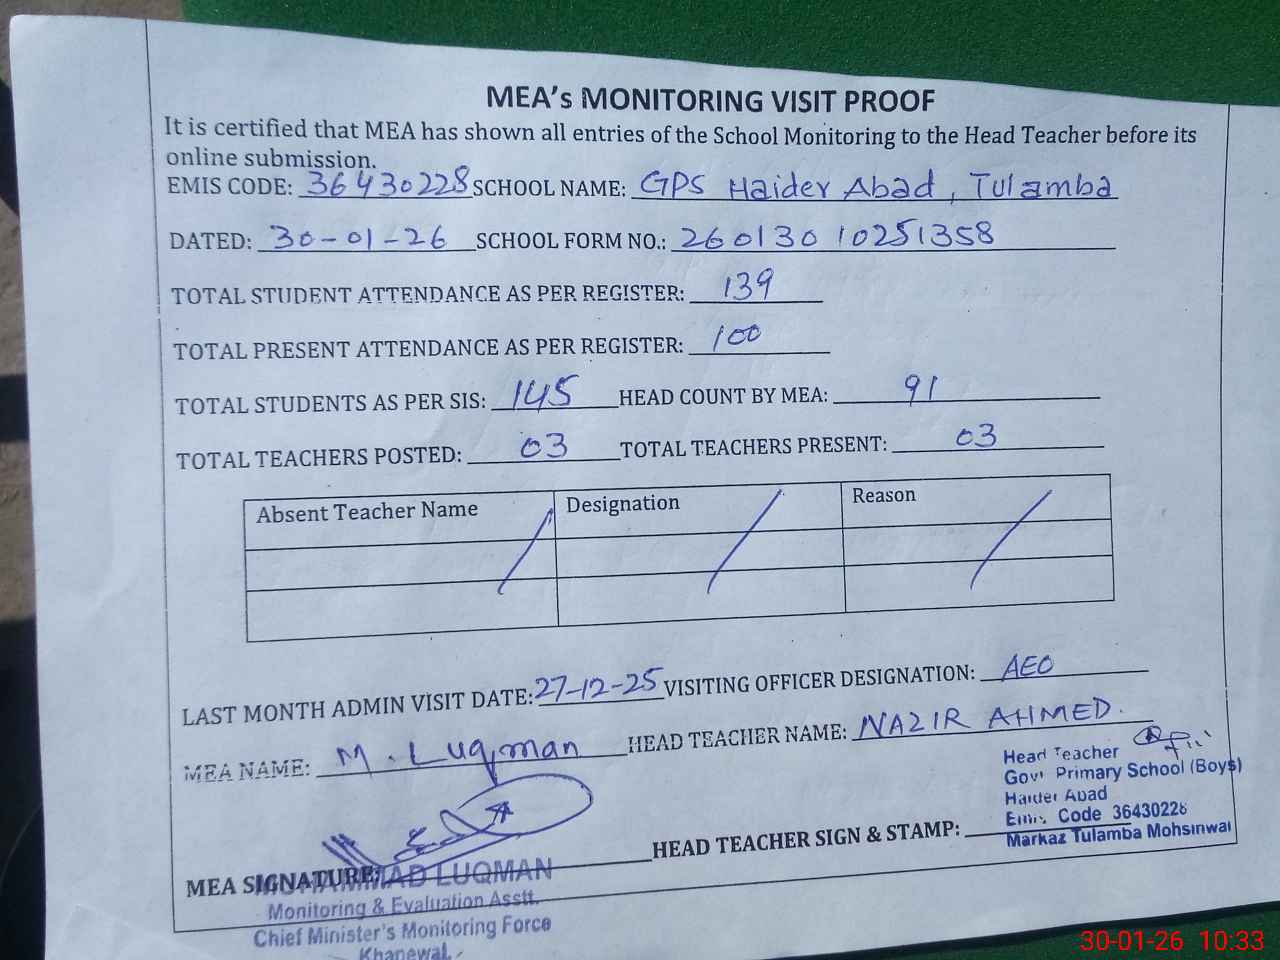 MEA's MONITORING VISIT PROOF
It is certified that MEA has shown all entries of the School Monitoring to the Head Teacher before its
online submission.
EMIS CODE: 36430228 SCHOOL NAME: GPS Haider Abad, Tulamba
DATED: 30-01-26 SCHOOL FORM NO.: 26013010251358
TOTAL STUDENT ATTENDANCE AS PER REGISTER: 139
TOTAL PRESENT ATTENDANCE AS PER REGISTER: 100
TOTAL STUDENTS AS PER SIS: 145 HEAD COUNT BY MEA: 91
TOTAL TEACHERS POSTED: 03 TOTAL TEACHERS PRESENT: 03
Absent Teacher Name Designation Reason
LAST MONTH ADMIN VISIT DATE: 27-12-25 VISITING OFFICER DESIGNATION: AEO
MEA NAME: M. Luqman HEAD TEACHER NAME: NAZIR AHMED.
Head Teacher
Govt Primary School (Boys)
Haider Abad
Emis Code 36430228
Markaz Tulamba Mohsinwal
MEA SIGNATURE: HEAD TEACHER SIGN & STAMP:
MUHAMMAD LUQMAN
Monitoring & Evaluation Asstt.
Chief Minister's Monitoring Force
Khanewal.
30-01-26 10:33